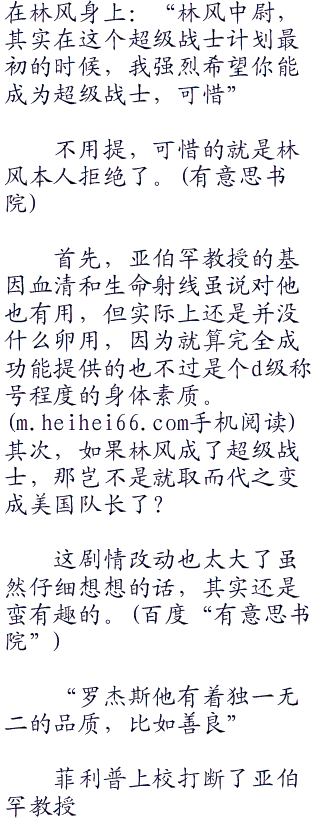 在林风身上：“林风中尉，
其实在这个超级战士计划最
初的时候，我强烈希望你能
成为超级战士，可惜”
不用提，可惜的就是林
风本人拒绝了。(有意思书
院)
首先，亚伯罕教授的基
因血清和生命射线虽说对他
也有用，但实际上还是并没
什么卵用，因为就算完全成
功能提供的也不过是个d级称
号程度的身体素质。
(m.heihei66.com手机阅读)
其次，如果林风成了超级战
士，那岂不是就取而代之变
成美国队长了？
这剧情改动也太大了虽
然仔细想想的话，其实还是
蛮有趣的。(百度“有意思书
院”)
“罗杰斯他有着独一无
二的品质，比如善良”
菲利普上校打断了亚伯
罕教授